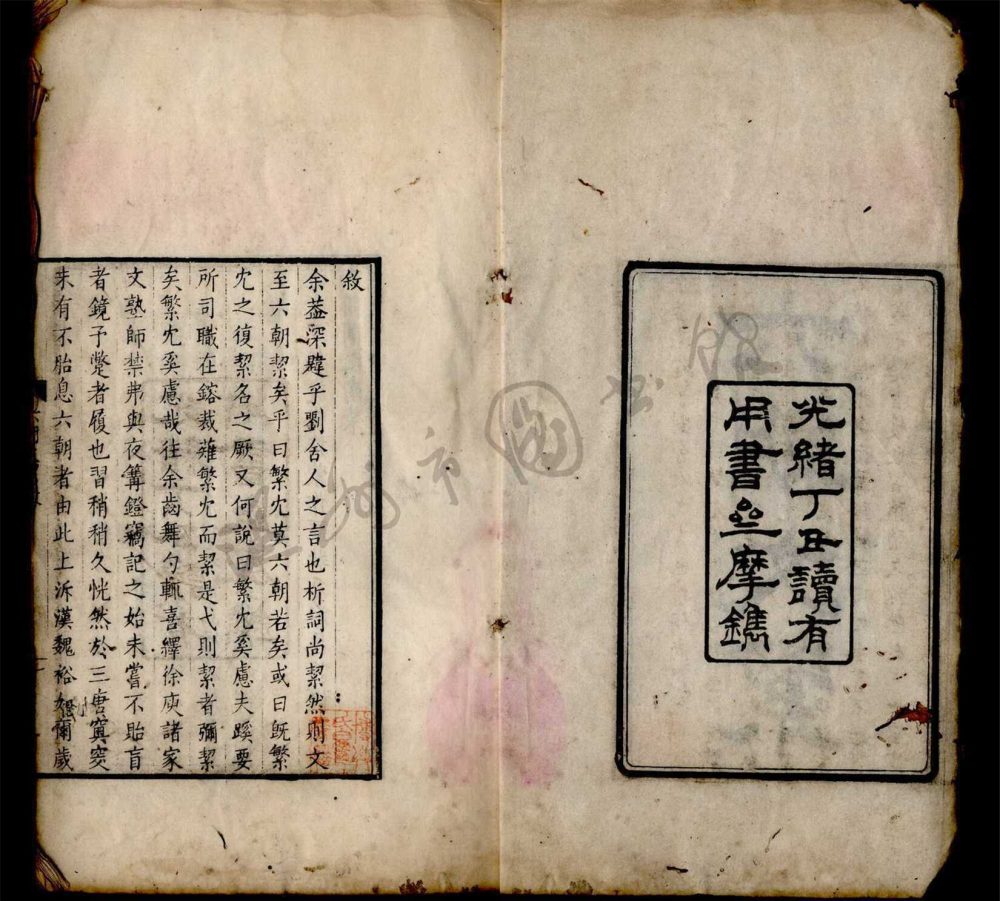 光緒丁丑讀有
用書㞢摩鐫
敘
余葢深韙乎劉舍人之言也析詞尚絜然則文
至六朝絜矣乎曰繁宂莫六朝若矣或曰旣繁
宂之復絜名之厥又何說曰繁宂奚慮夫蹊要
所司職在鎔裁薙繁宂而絜是弋則絜者彌絜
矣繁宂奚慮哉往余齒舞勺輒喜繹徐庾諸家
文塾師禁弗與夜篝鐙竊記之始未嘗不眙盲
者鏡予躄者履也習稍稍久恍然於三唐窔
未有不胎息六朝者由此上泝漢魏裕如爾歲